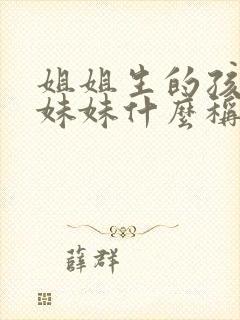 姐姐生的孩
妹妹什麼稱
薛群